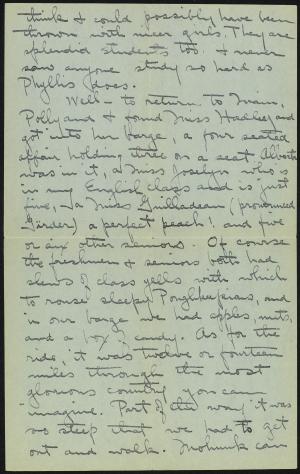 think I could possibly have been
thrown with nicer girls. They are
splendid students too. I never
saw anyone study so hard as
Phyllis does.
Well - to return to train,
Polly and I found Miss Hadley and
got into her barge, a four seated
affair holding three on a seat. 
was in it, a Miss Joselyn who is
in my English class and is just
fine, a Miss (pronounced
) a perfect peach! and five
or six other seniors. Of course
the freshmen & seniors both had
slews of class yells with which
to rouse sleepy Poughkeepsians, and
in our barge we had apples, nuts,
and a box of candy. As for the
ride, it was twelve or fourteen
miles through the most
glorious country you can
imagine. Part of the way it was
so steep that we had to get
out and walk. Mohonk can